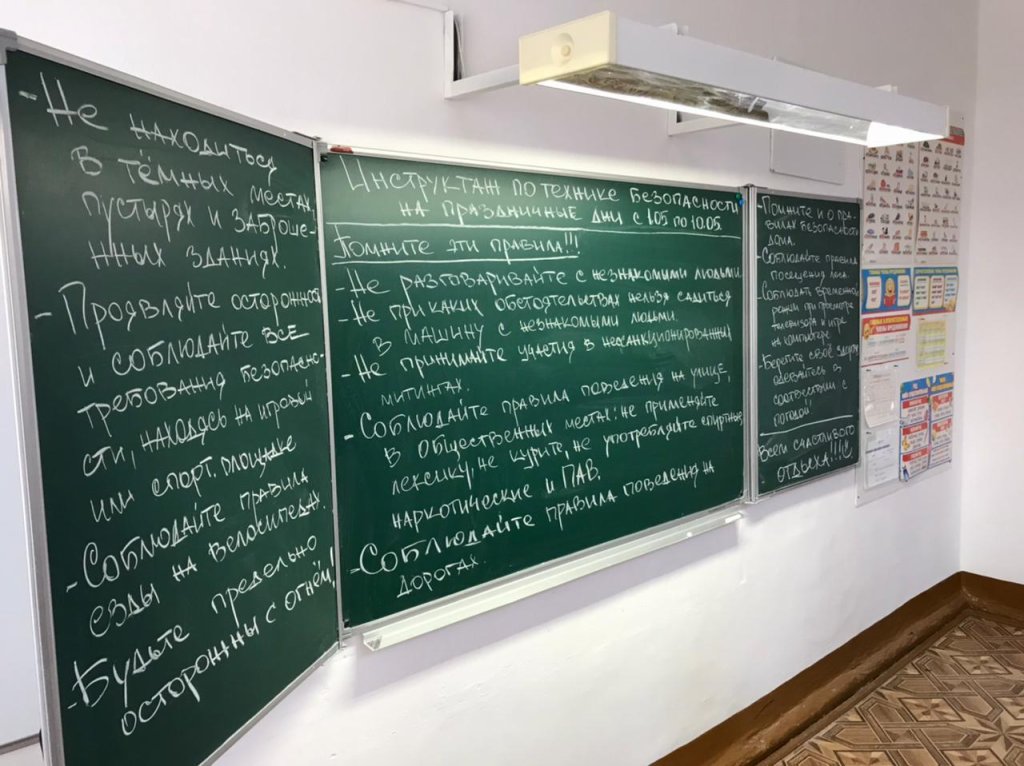 - Не находиться
в тёмных местах,
пустырях и заброше-
нных зданиях.
- Проявляйте осторожность
и соблюдайте ВСЕ
требования безопасно-
сти, находясь на игровой
или спорт. площадке
- Соблюдайте правила
езды на велосипедах.
- Будьте предельно
осторожны с огнём!
Инструктаж по технике безопасности
на праздничные дни с 1.05 по 10.05.
Помните эти правила!!!
- Не разговаривайте с незнакомыми людьми.
- Не при каких обстоятельствах нельзя садиться
в машину с незнакомыми людьми.
- Не принимайте участия в несанкционированных
митингах.
- Соблюдайте правила поведения на улице,
в общественных местах: не применяйте
лексику, не курите, не употребляйте спиртные,
наркотические и ПАВ.
- Соблюдайте правила поведения на
дорогах.
- Помните и о пра-
вилах безопасности
дома.
- Соблюдайте правила
посещения леса.
- Соблюдайте временной
режим при просмотре
телевизора и игре
на компьютере
- Берегите своё здоровье
одевайтесь в
соответствии с
погодой!
Всем счастливого
отдыха!!!